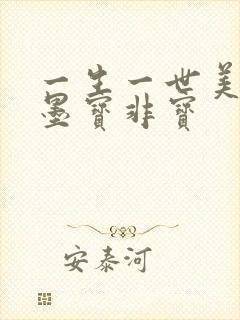 一生一世美
墨寶非寶
安泰河